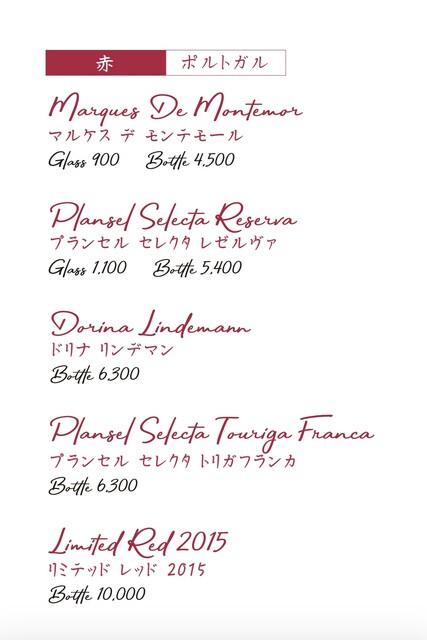 赤 ポルトガル
Marques De Montemor
マルケス デ モンテモール
Glass 900 Bottle 4,500
Plansel Selecta Reserva
プランセル セレクタ レゼルヴァ
Glass 1,100 Bottle 5,400
Dorina Lindemann
ドリナ リンデマン
Bottle 6,300
Plansel Selecta Touriga Franca
プランセル セレクタ トリガフランカ
Bottle 6,300
Limited Red 2015
リミテッド レッド 2015
Bottle 10,000